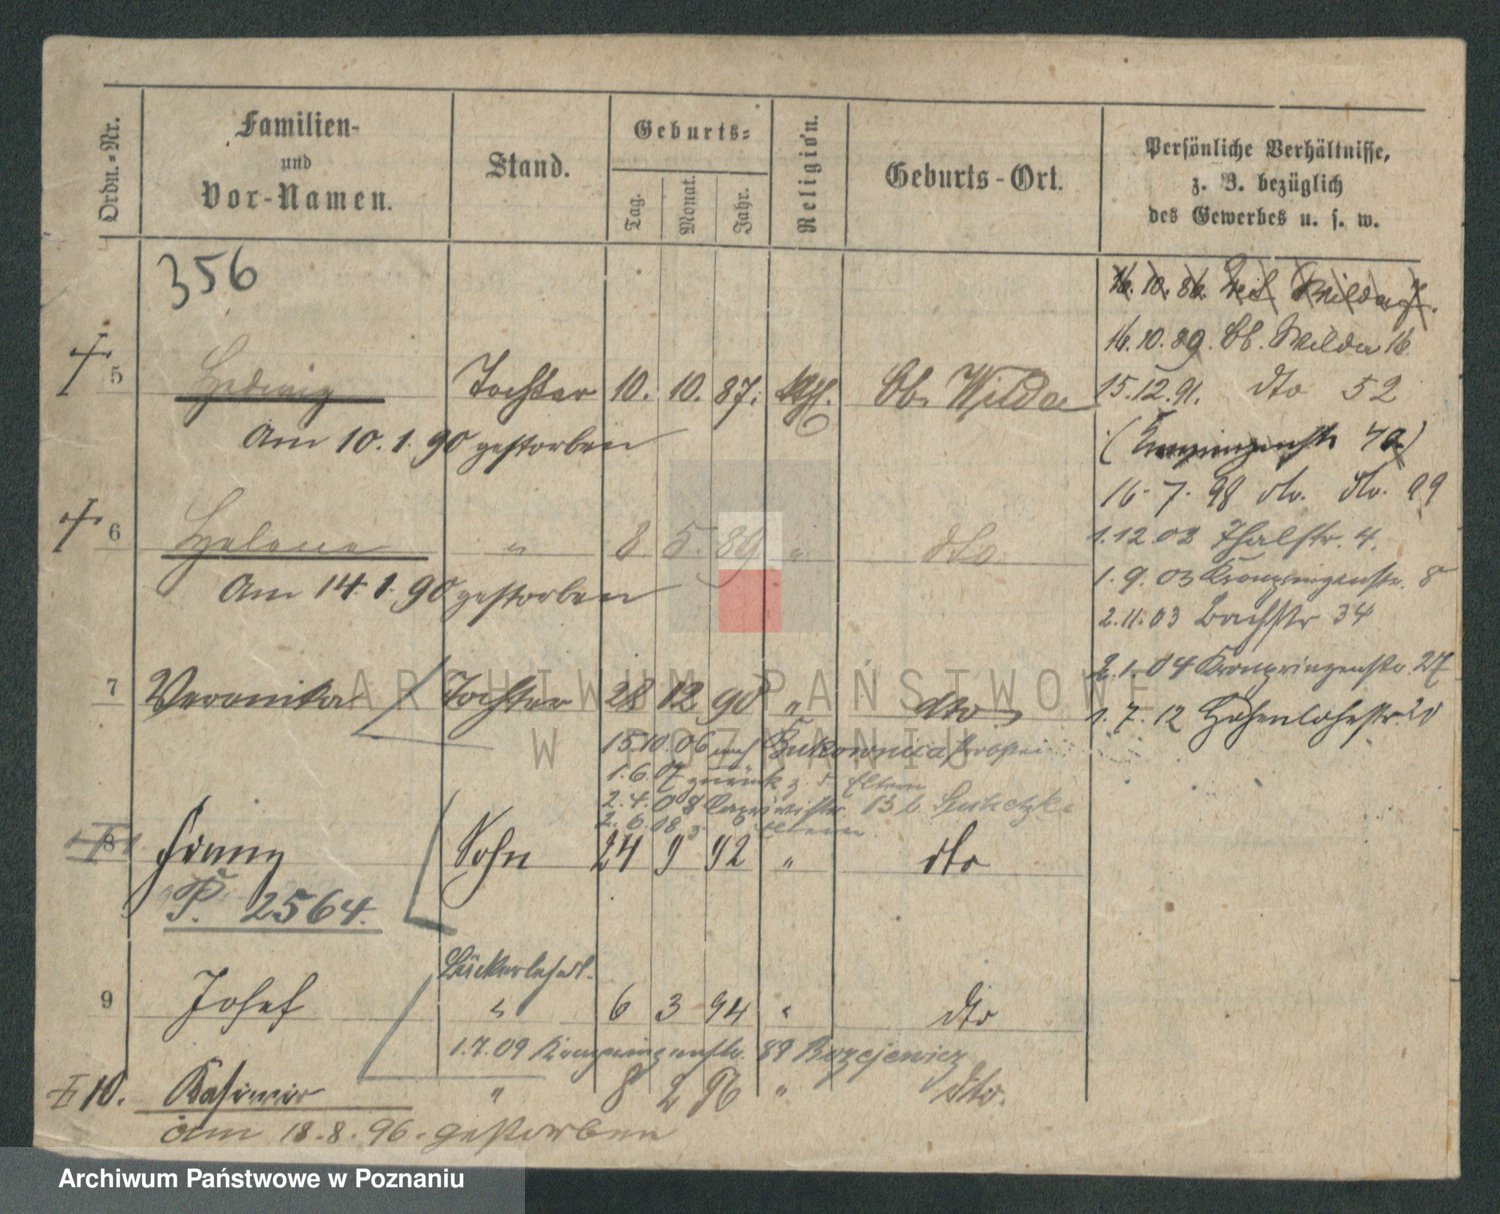 Ordn.=Nr.
Familien-
und
Vor-Namen.
Stand.
Geburts=
Tag.
Monat.
Jahr.
Religion.
Geburts-Ort.
Persönliche Verhältnisse,
z. B. bezüglich
des Gewerbes u. s. w.
356
16. 10. 86.
16. 10. 89. Ob. Wilda 16
5 Hedwig Tochter 10. 10. 87. kth. Ob. Wilda
15.12.91. dto 52
Am 10. 1. 90 gestorben
(Kronprinzenstr
16. 7. 98 dto. dto. 99
6 Helene " 8 5. 89 " dto
1.12.02 Thalstr. 4.
Am 14. 1. 90 gestorben
1. 9. 03 Kronprinzenstr. 8
2.11.03 Bachstr 34
2. 1. 04 Kronprinzenstr. 27
7 Veronika Tochter 28 12 90 " dto
1. 7. 12 Hohenlohestr.
15.10.06 nach Bukownica
1.6.07 zurück z. d. Eltern
2.4.08 Caprivistr. 13 b.
2.6.08 z Eltern
8 Franz Sohn 24 9 92 " dto
P. 2564.
Bäckerlehrl.
9 Josef " 6 3 94 " dto
1.7.09 Kronprinzenstr. 89
10. Kasimir " 8 2 96 " dto.
am 18. 8. 96. gestorben
ARCHIWUM PAŃSTWOWE
W POZNANIU
Archiwum Państwowe w Poznaniu